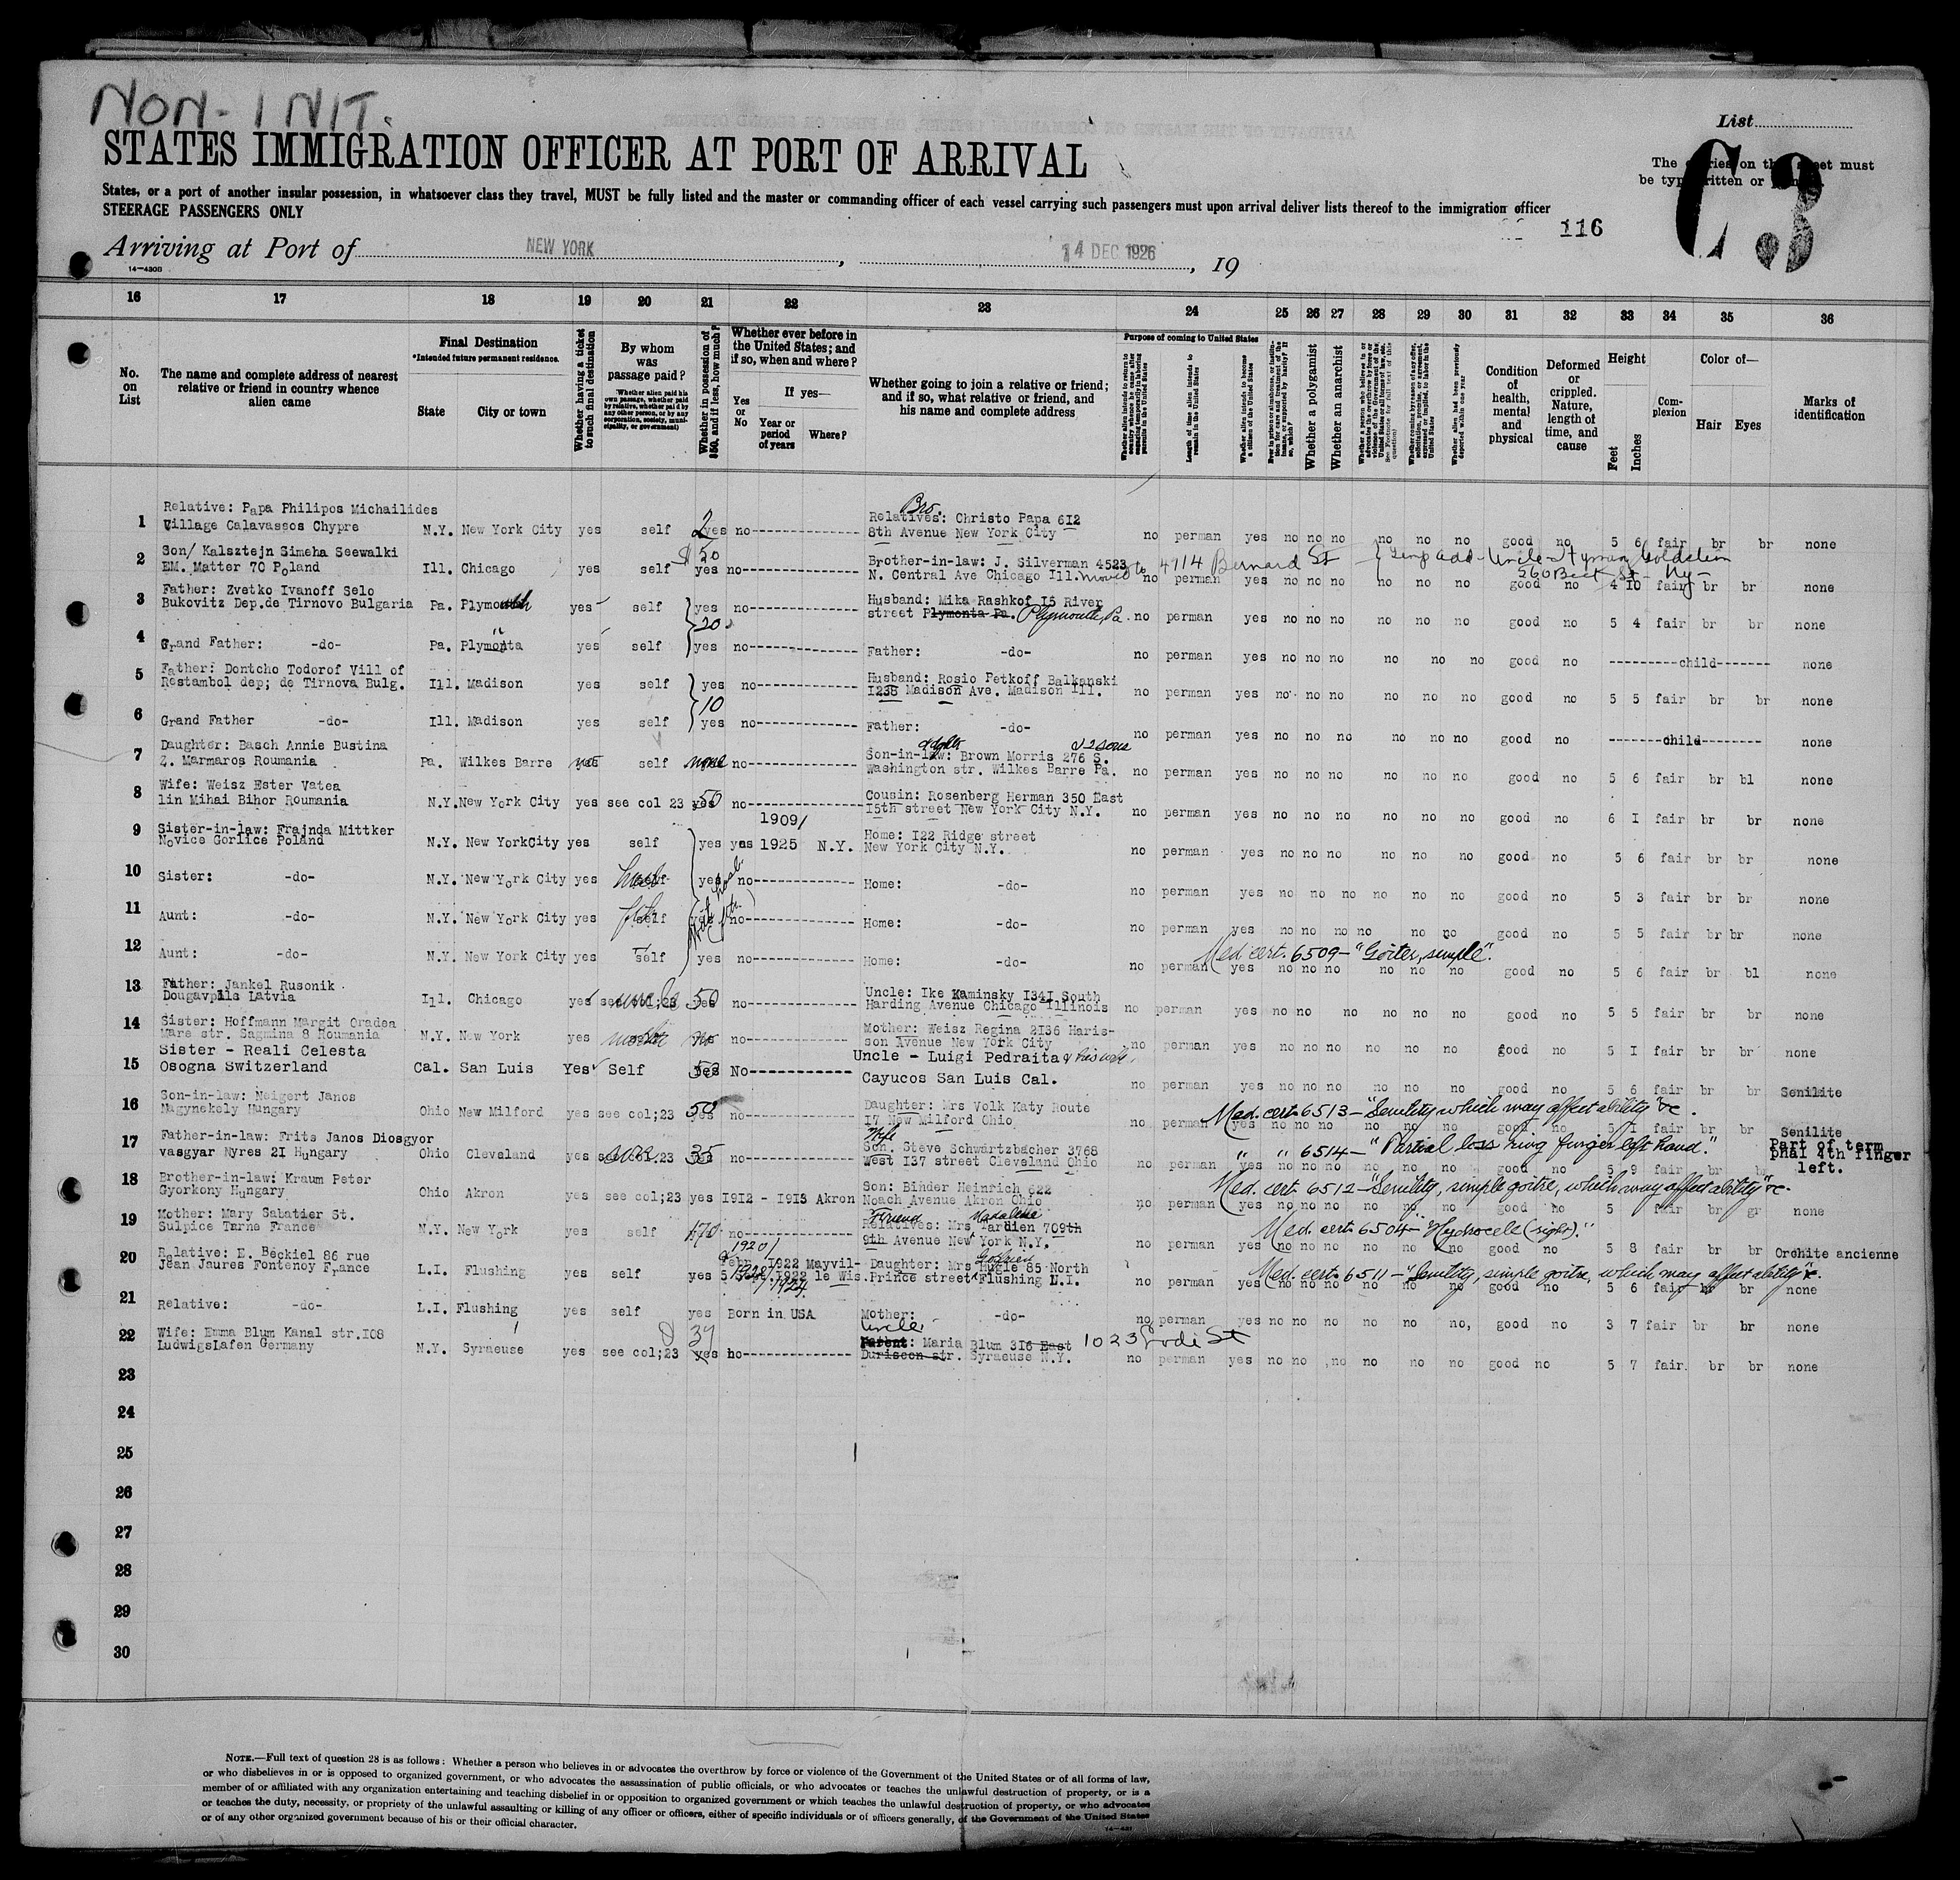 NON-INIT.
STATES IMMIGRATION OFFICER AT PORT OF ARRIVAL
List
C3
The entries on this sheet must
be typewritten or printed.
States, or a port of another insular possession, in whatsoever class they travel, MUST be fully listed and the master or commanding officer of each vessel carrying such passengers must upon arrival deliver lists thereof to the immigration officer
STEERAGE PASSENGERS ONLY
116
Arriving at Port of NEW YORK, 14 DEC 1926, 19
14-430B
16 17 18 19 20 21 22 23 24 25 26 27 28 29 30 31 32 33 34 35 36
No. on List
The name and complete address of nearest relative or friend in country whence alien came
Final Destination
*Intended future permanent residence.
State City or town
Whether having a ticket to such final destination
By whom was passage paid?
Whether in possession of $50, and if less, how much?
Whether ever before in the United States; and if so, when and where?
Yes or No
If yes—
Year or period of years Where?
Whether going to join a relative or friend; and if so, what relative or friend, and his name and complete address
Purpose of coming to United States
Length of time alien intends to remain in the United States
Whether alien intends to become a citizen of the United States
Whether a polygamist
Whether an anarchist
Whether alien had been previously deported within one year
Condition of health, mental and physical
Deformed or crippled. Nature, length of time, and cause
Height
Feet Inches
Complexion
Color of—
Hair Eyes
Marks of identification
1 Relative: Papa Philipos Michailides
Village Calavassos Chypre N.Y. New York City yes self 2 yes no Bro. Relatives: Christo Papa 612
8th Avenue New York City no perman yes no no no no no no good no 5 6 fair br br none
2 Son/ Kalsztejn Simeha Seewalki
EM. Matter 70 Poland Ill. Chicago yes self $50 yes no Brother-in-law: J. Silverman 4523
N. Central Ave Chicago Ill. moved to 4714 Bernard St no perman yes no no no no no no good no 4 10 fair br br none
3 Father: Zvetko Ivanoff Selo
Bukovitz Dep.de Tirnovo Bulgaria Pa. Plymouth yes self yes 20 no Husband: Mika Rashkof 15 River
street Plymonta Pa. Plymouth, Pa. no perman yes no no no no no no good no 5 4 fair br br none
4 Grand Father: -do- Pa. Plymonta yes self yes no Father: -do- no perman yes no no no no no no good no child none
5 Father: Dontcho Todorof Vill of
Restambol dep; de Tirnova Bulg. Ill. Madison yes self yes 10 no Husband: Rosio Petkoff Balkanski
1238 Madison Ave. Madison Ill. no perman yes no no no no no no good no 5 5 fair br br none
6 Grand Father -do- Ill. Madison yes self yes no Father: -do- no perman yes no no no no no no good no child none
7 Daughter: Basch Annie Bustina
Z. Marmaros Roumania Pa. Wilkes Barre self none no Son-in-law: Brown Morris 276 S. & 2 sons
Washington str. Wilkes Barre Pa. no perman yes no no no no no no good no 5 6 fair br bl none
8 Wife: Weisz Ester Vatea
lin Mihai Bihor Roumania N.Y. New York City yes see col 23 yes 50 no Cousin: Rosenberg Herman 350 East
15th street New York City N.Y. no perman yes no no no no no no good no 6 1 fair br br none
9 Sister-in-law: Frajnda Mittker
Novice Gorlice Poland N.Y. New YorkCity yes self yes yes 1909/ 1925 N.Y. Home: 122 Ridge street
New York City N.Y. no perman yes no no no no no no good no 5 6 fair br br none
10 Sister: -do- N.Y. New York City yes self yes no Home: -do- no perman yes no no no no no no good no 5 3 fair br br none
11 Aunt: -do- N.Y. New York City yes self yes no Home: -do- no perman yes no no no no no no good no 5 5 fair br br none
12 Aunt: -do- N.Y. New York City yes self yes no Home: -do- Med cert. 6509 - "Goiter, simple".
no perman yes no no no no no no good no 5 6 fair br bl none
13 Father: Jankel Rusonik
Dougavpils Latvia Ill. Chicago yes see col;23 uncle yes 50 no Uncle: Ike Kaminsky 1341 South
Harding Avenue Chicago Illinois no perman yes no no no no no no good no 5 5 fair br br none
14 Sister: Hoffmann Margit Oradea
Mare str. Sagmina 8 Roumania N.Y. New York yes mother no Mother: Weisz Regina 2136 Haris-
son Avenue New York City no perman yes no no no no no no good no 5 1 fair br br none
15 Sister - Reali Celesta
Osogna Switzerland Cal. San Luis Yes Self Yes 50 No Uncle - Luigi Pedraita & his wife
Cayucos San Luis Cal. no perman yes no no no no no no good no 5 6 fair br br Senilite
16 Son-in-law: Neigert Janos
Nagynekely Hungary Ohio New Milford yes see col;23 yes 50 no Daughter: Mrs Volk Katy Route
17 New Milford Ohio Med. cert. 6513 - "Senility which may affect ability" &c.
no perman yes no no no no no no good no 5 1 fair br br Senilite
17 Father-in-law: Frits Janos Diosgyor
vasgyar Nyres 21 Hungary Ohio Cleveland yes see col.23 yes 35 no Wife Son. Steve Schwartzbacher 3768
West 137 street Cleveland Ohio " " 6514 - "Partial loss ring finger left hand."
no perman yes no no no no no no good no 5 9 fair br br Part of term
phal 4th finger
left.
18 Brother-in-law: Kraum Peter
Gyorkony Hungary Ohio Akron yes see col;23 yes 1912 - 1913 Akron Son: Binder Heinrich 622
Noach Avenue Akron Ohio Med. cert. 6512 - "Senility, simple goitre, which may affect ability" &c.
no perman yes no no no no no no good no 5 fair br gr none
19 Mother: Mary Sabatier St.
Sulpice Tarne France N.Y. New York yes self 170 no Friend Madaleine
Relatives: Mrs Tardien 709th
9th Avenue New York N.Y. Med. cert. 6504 - "Hydrocele (right)."
no perman yes no no no no no no good no 5 8 fair br br Orchite ancienne
20 Relative: E. Beckiel 86 rue
Jean Jaures Fontenoy France L.I. Flushing yes self yes 1920/ 1922 Mayvil-
le Wis. 1924 Daughter: Mrs Hugle 85 North
Prince street Flushing L.I. Med. cert. 6511 - "Senility, simple goitre, which may affect ability" &c.
no perman yes no no no no no no good no 5 6 fair br br none
21 Relative: -do- L.I. Flushing yes self yes Born in USA Mother: -do- no perman yes no no no no no no, good no 3 7 fair br br none
22 Wife: Emma Blum Kanal str.108
LudwigsLafen Germany N.Y. Syracuse yes see col;23 yes 37 no Uncle Parent: Maria Blum 316 East 1023 Lodi St
Duriscon str. Syracuse N.Y. no perman yes no no no no no no good no 5 7 fair. br br none
23
24
25
26
27
28
29
30
NOTE.—Full text of question 28 is as follows: Whether a person who believes in or advocates the overthrow by force or violence of the Government of the United States or of all forms of law,
or who disbelieves in or is opposed to organized government, or who advocates the assassination of public officials, or who advocates or teaches the unlawful destruction of property, or is a
member of or affiliated with any organization entertaining and teaching disbelief in or opposition to organized government or which teaches the unlawful destruction of property, or who advocates
or teaches the duty, necessity, or propriety of the unlawful assaulting or killing of any officer or officers, either of specific individuals or of officers generally, of the Government of the United States
or of any other organized government because of his or their official character.
14-431